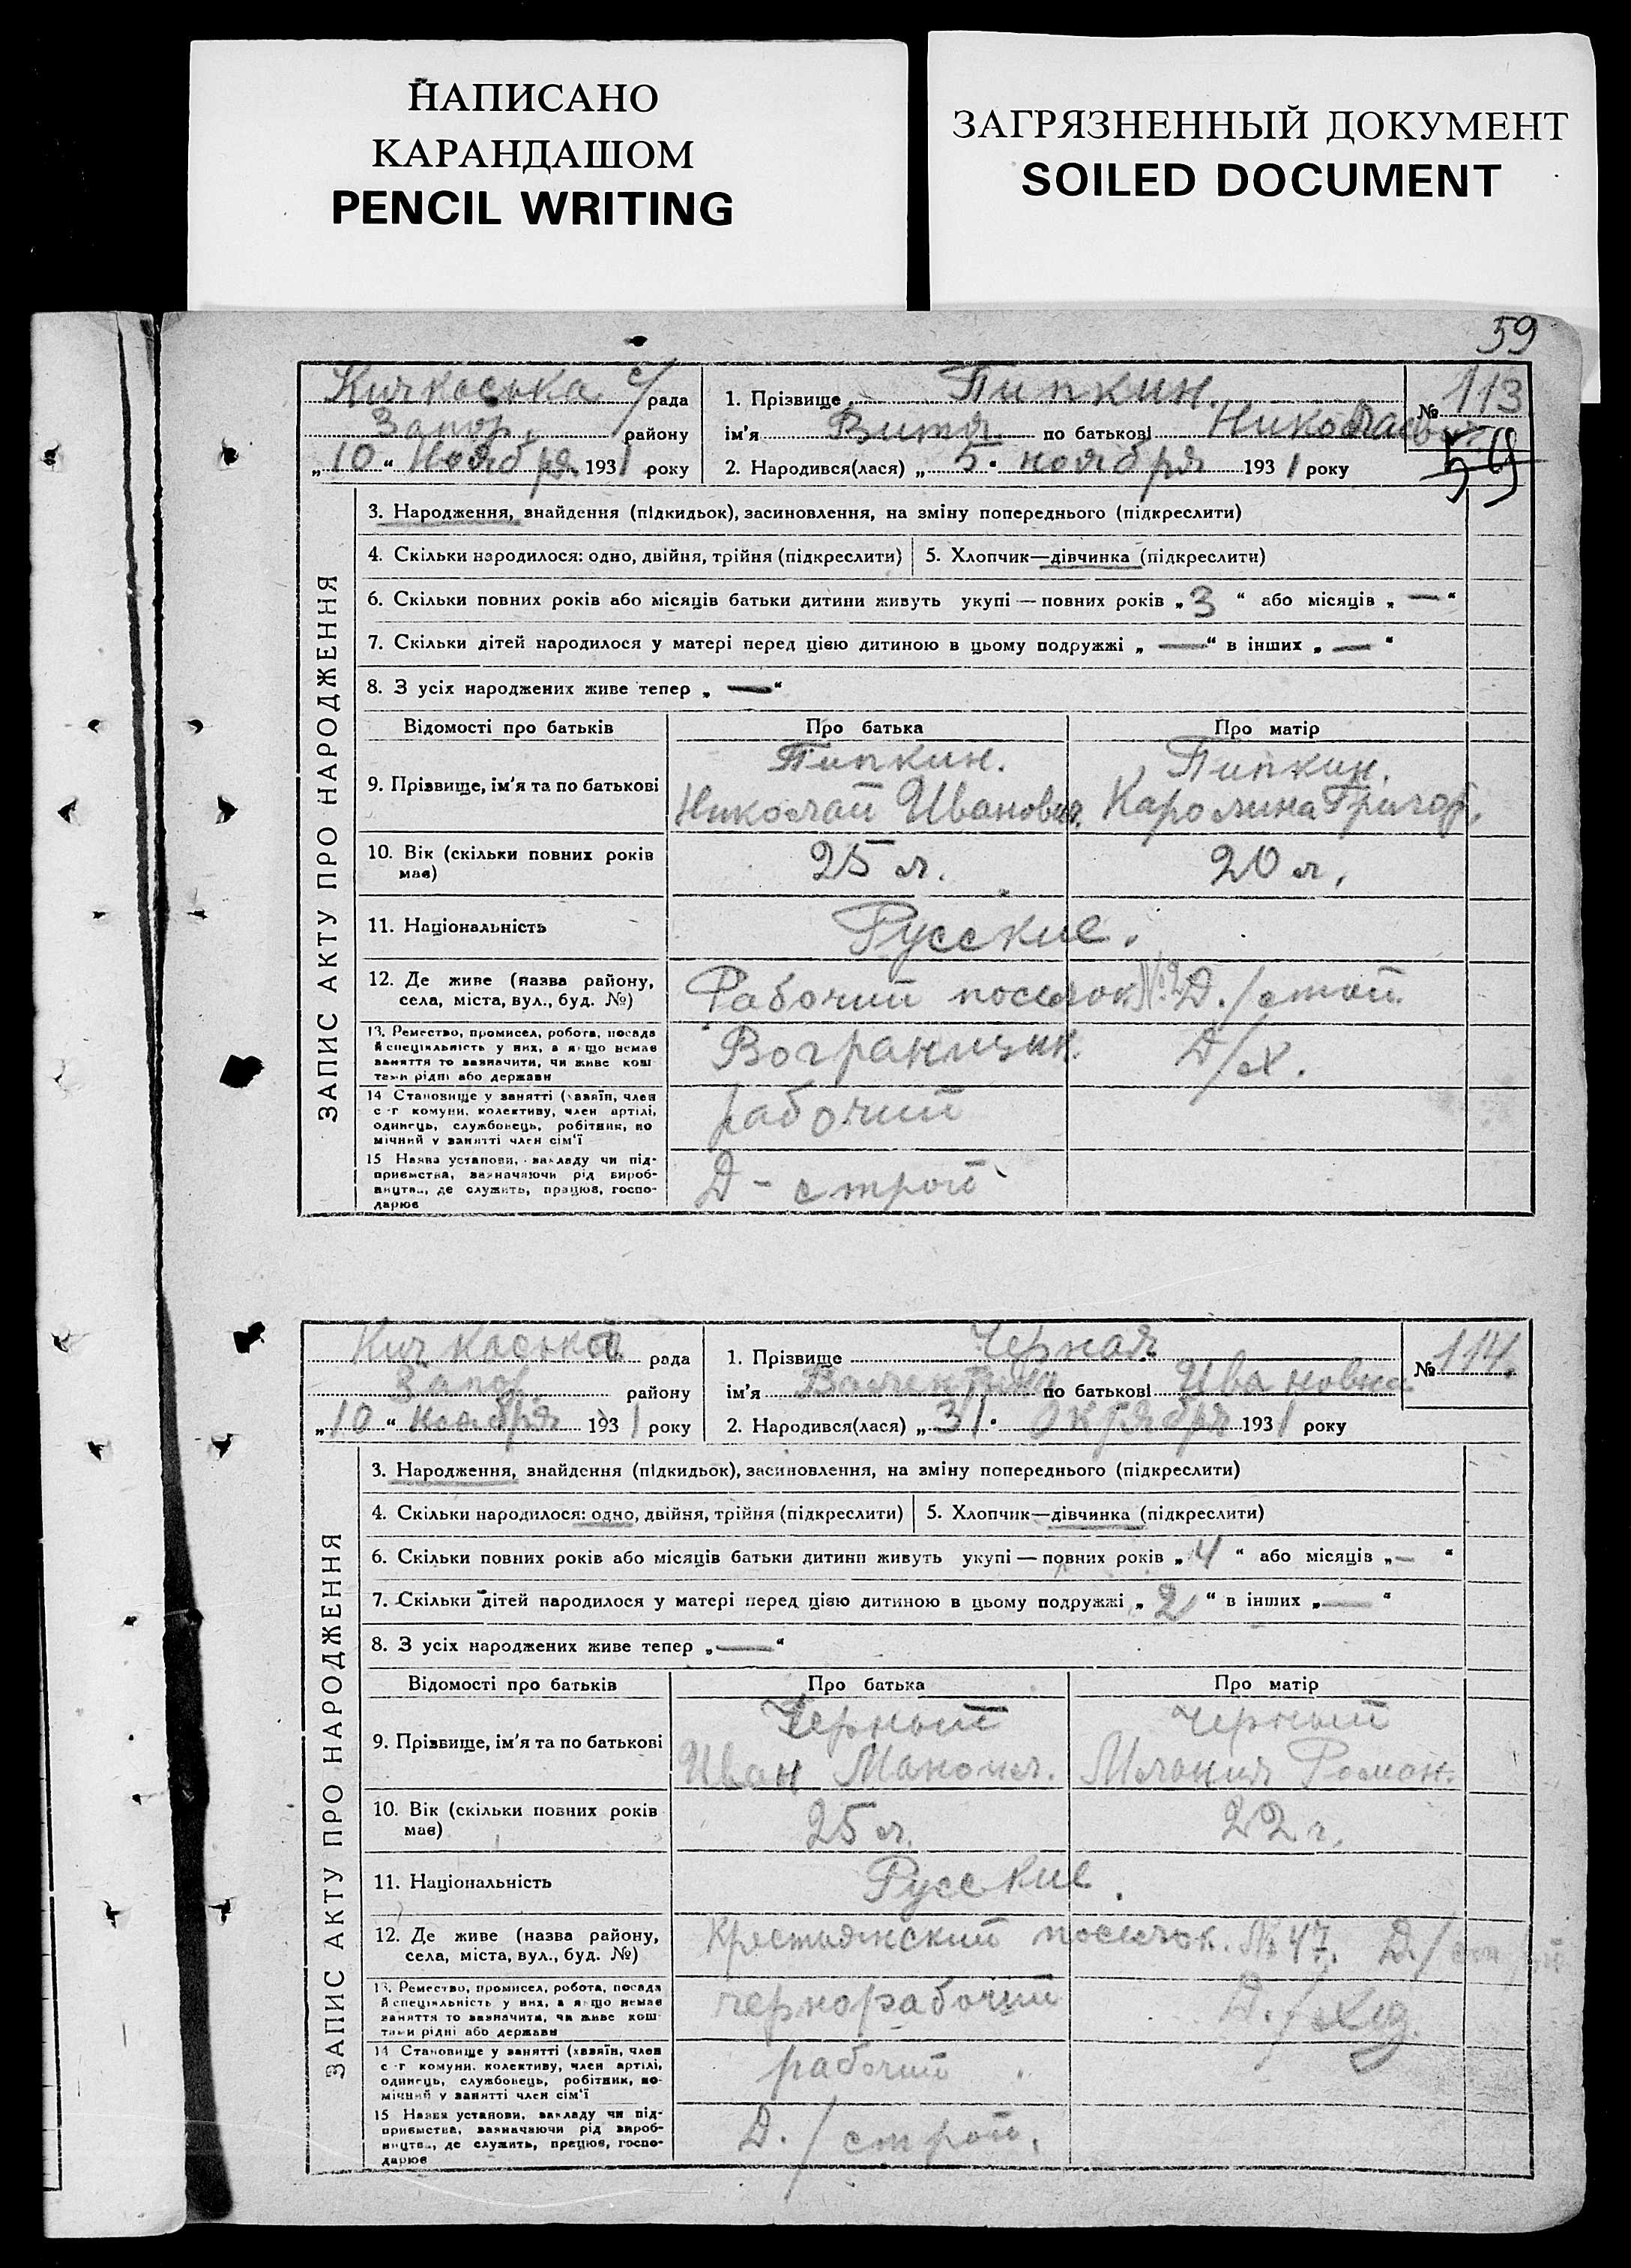 НАПИСАНО
КАРАНДАШОМ
PENCIL WRITING
ЗАГРЯЗНЕННЫЙ ДОКУМЕНТ
SOILED DOCUMENT
59
Кичкаська с/рада
Запор. району
„10“ Ноября 1931 року
1. Прізвище Пипкин.
ім'я Витя по батькові Николаевич
2. Народився(лася) „5“ ноября 1931 року
№ 113
59
ЗАПИС АКТУ ПРО НАРОДЖЕННЯ
3. Народження, знайдення (підкидьок), засиновлення, на зміну попереднього (підкреслити)
4. Скільки народилося: одно, двійня, трійня (підкреслити) 5. Хлопчик—дівчинка (підкреслити)
6. Скільки повних років або місяців батьки дитини живуть укупі — повних років „3“ або місяців „—“
7. Скільки дітей народилося у матері перед цією дитиною в цьому подружжі „—“ в інших „—“
8. З усіх народжених живе тепер „—“
Відомості про батьків Про батька Про матір
9. Прізвище, ім'я та по батькові
Пипкин.
Николай Иванович.
Пипкин.
Каролина Григор.
10. Вік (скільки повних років
має)
25 л.
20 л.
11. Національність
Русские.
12. Де живе (назва району,
села, міста, вул., буд. №)
Рабочий поселок №2 Д./строй.
13. Ремество, промисел, робота, посада
й спеціяльність у них, а якщо немає
заняття то зазначити, чи живе кош-
тами рідні або держави
Д/х.
14 Становище у занятті (хазяїн, член
с-г комуни, колективу, член артілі,
одинець, службовець, робітник, по-
мічний у занятті член сім'ї
рабочий
15 Назва установи, закладу чи під-
приємства, зазначаючи рід вироб-
ництва, де служить, працює, госпо-
дарює
Д - строй
Кичкаської рада
Запор. району
„10“ ноября 1931 року
1. Прізвище Черная
ім'я Валентина по батькові Ивановна.
2. Народився(лася) „31“ Октября 1931 року
№ 114.
ЗАПИС АКТУ ПРО НАРОДЖЕННЯ
3. Народження, знайдення (підкидьок), засиновлення, на зміну попереднього (підкреслити)
4. Скільки народилося: одно, двійня, трійня (підкреслити) 5. Хлопчик—дівчинка (підкреслити)
6. Скільки повних років або місяців батьки дитини живуть укупі — повних років „4“ або місяців „—“
7. Скільки дітей народилося у матері перед цією дитиною в цьому подружжі „2“ в інших „—“
8. З усіх народжених живе тепер „—“
Відомості про батьків Про батька Про матір
9. Прізвище, ім'я та по батькові
Черный
Иван
Черный
Роман.
10. Вік (скільки повних років
має)
25 л.
22 г.
11. Національність
Русские.
12. Де живе (назва району,
села, міста, вул., буд. №)
Крестьянский поселок. № 47. Д./строй
13. Ремество, промисел, робота, посада
й спеціяльність у них, а якщо немає
заняття то зазначити, чи живе кош-
тами рідні або держави
чернорабочий
Д./хоз.
14 Становище у занятті (хазяїн, член
с-г комуни, колективу, член артілі,
одинець, службовець, робітник, по-
мічний у занятті член сім'ї
рабочий
15 Назва установи, закладу чи під-
приємства, зазначаючи рід вироб-
ництва, де служить, працює, госпо-
дарює
Д./строй.